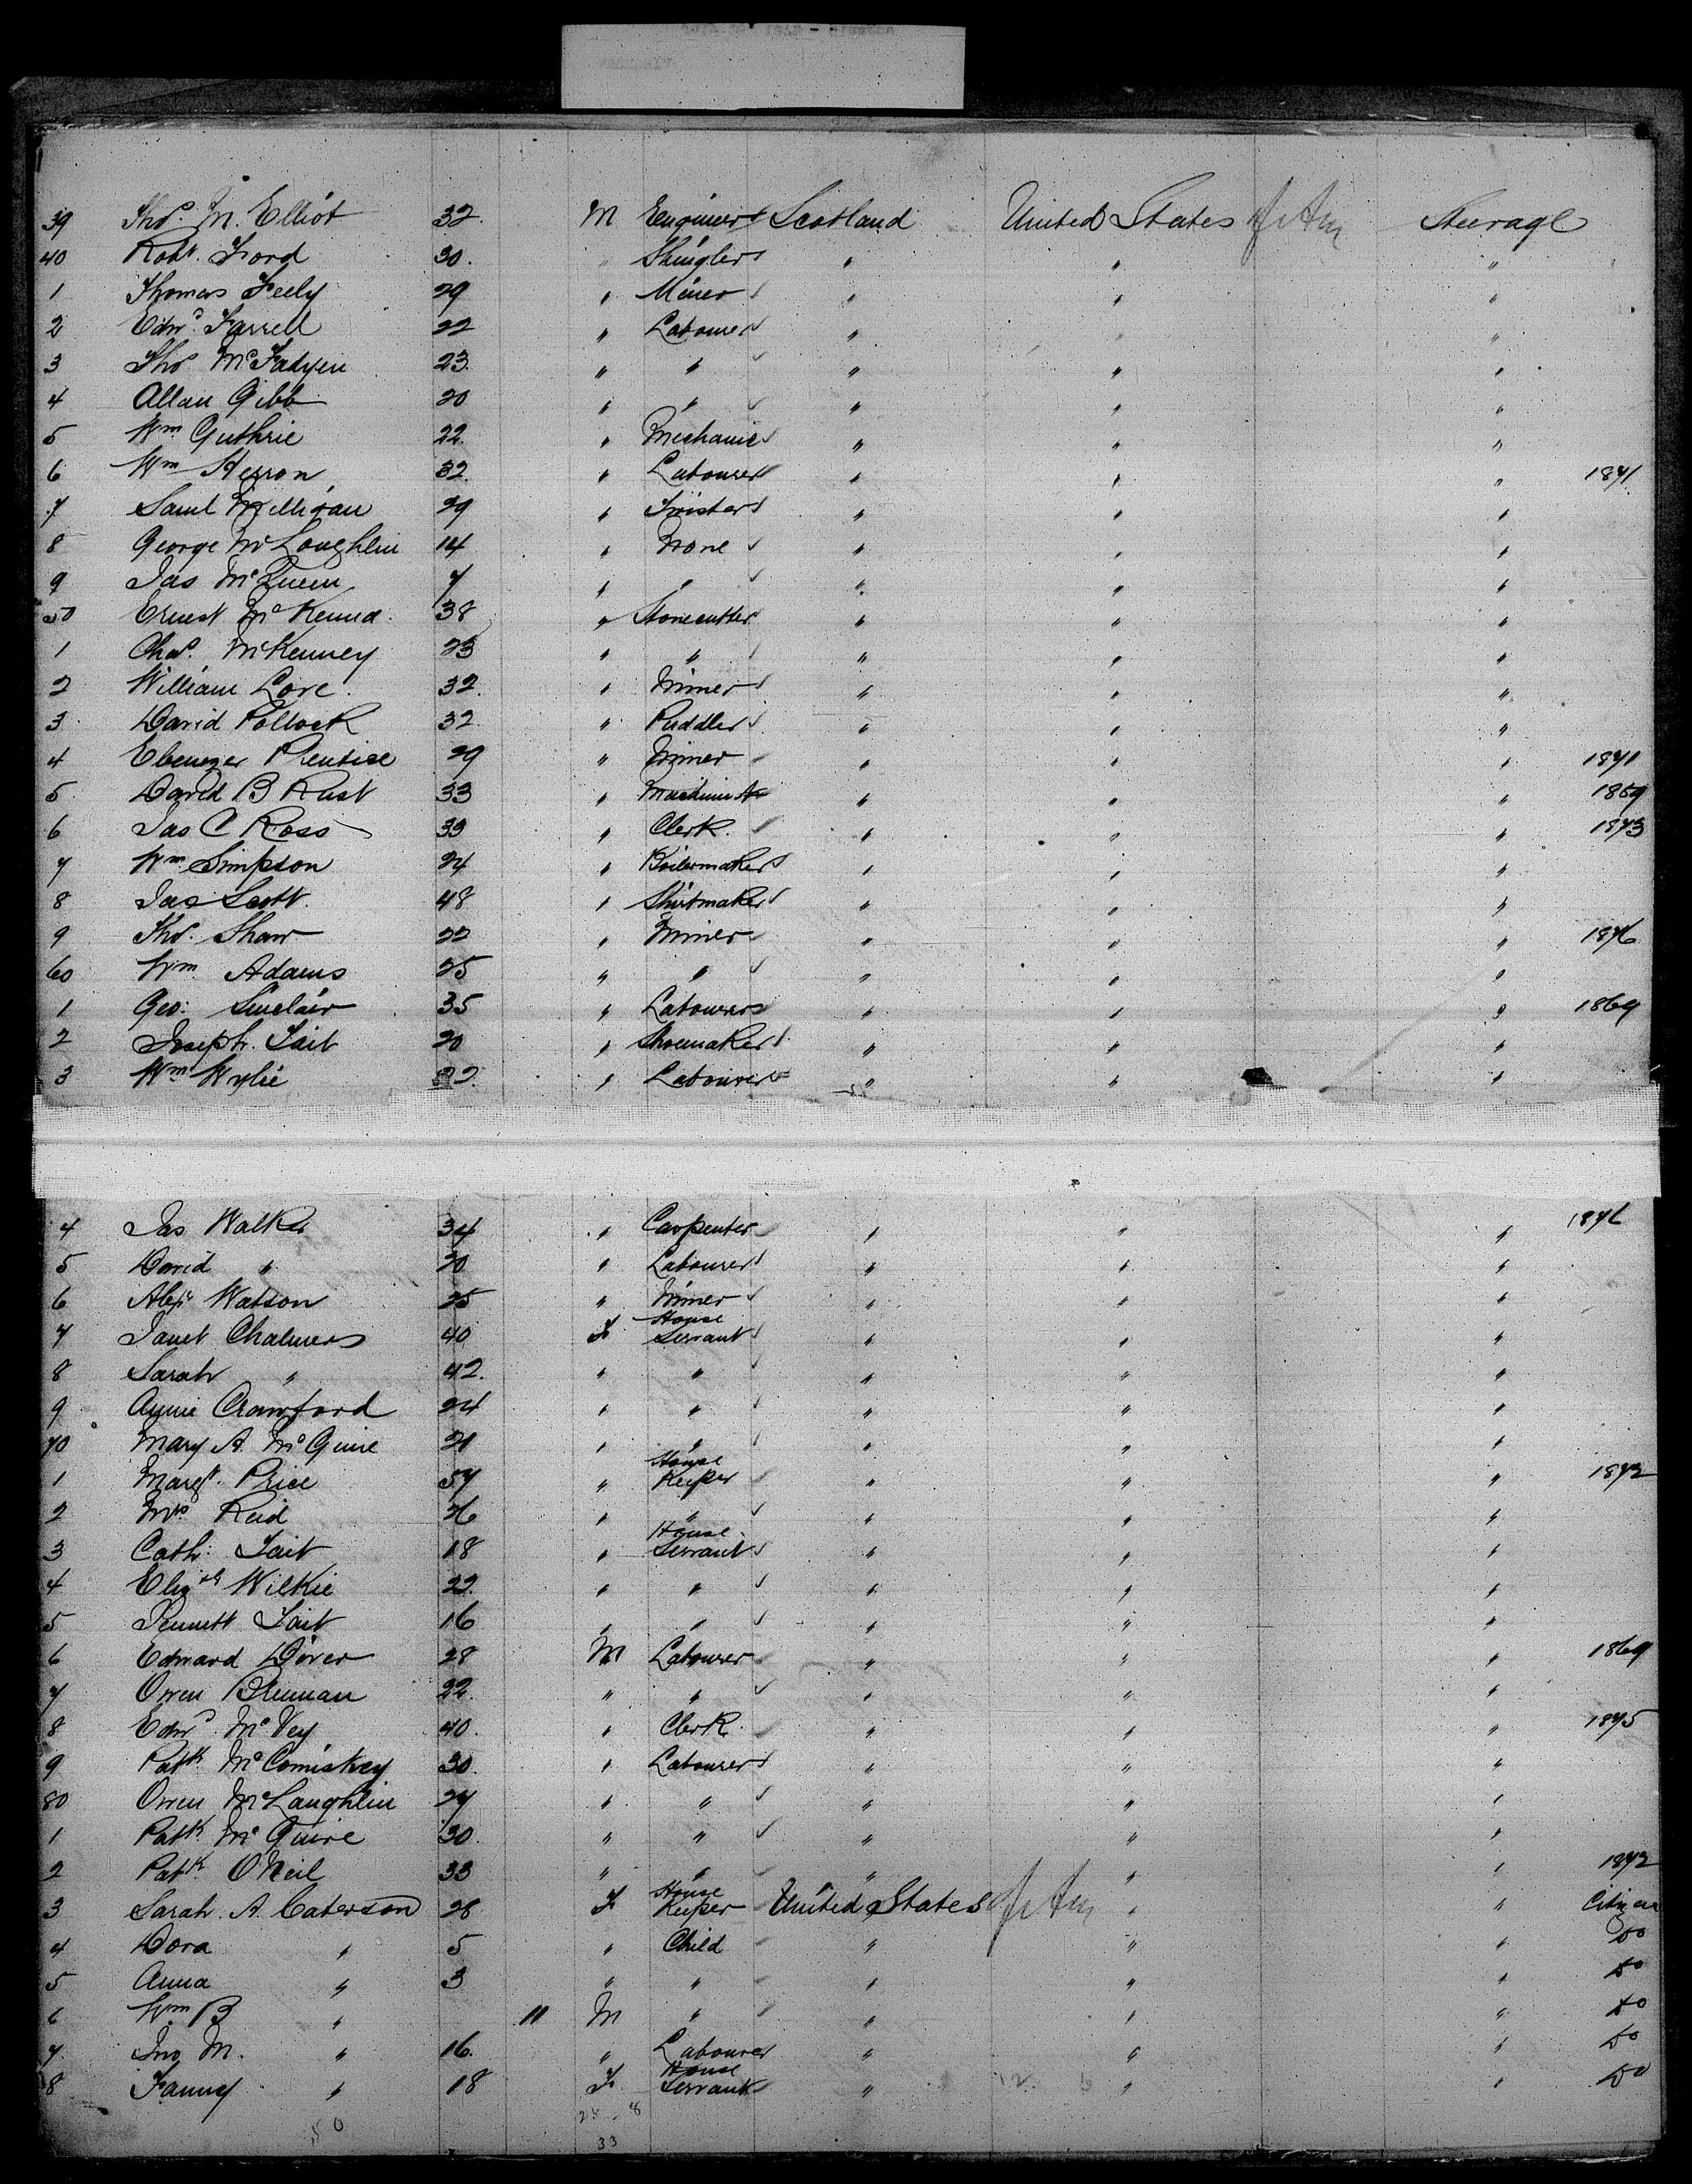 39 Thos. M. Elliot 32. M Engineer Scotland United States Steerage
40 Robt. Ford 30. " Shingler " " "
1 Thomas Feely 29 " Miner " " "
2 Edwd. Farrell 22 " Labourer " " "
3 Thos McFadyen 23. " " " " "
4 Allan Gibb 20 " " " " "
5 Wm. Guthrie 22. " Mechanic " " "
6 Wm Herron 32. " Labourer " " " 1871
7 Saml Milligan 29 " Twister " " "
8 George McLoughlin 14 " None " " "
9 Jas McQueen 7 " " " " "
50 Ernest McKenna 38 " Stonecutter " " "
1 Chas. McKenney 23 " " " " "
2 William Love 32. " Miner " " "
3 David Pollock 32. " Puddler " " "
4 Ebenezer Prentice 29 " Miner " " " 1871
5 David B Rust 33 " Machinist " " " 1869
6 Jas C Ross 33 " Clerk. " " " 1873
7 Wm Simpson 24 " Boilermaker " " "
8 Jas Scott. 48 " Shirtmaker " " "
9 Thos. Shaw 22 " Miner " " " 1876
60 Wm. Adams 25 " " " " "
1 Geo: Sinclair 35 " Labourer " " " 1869
2 Joseph. Tait 20 " Shoemaker " " "
3 Wm Wylie 22. " Labourer " " "
4 Jas Walker 34 " Carpenter " " " 1876
5 David " 20 " Labourer " " "
6 Alexr Watson 25 " Miner " " "
7 Janet Chalmers 40 F House Servant " " "
8 Sarah " 42. " " " " "
9 Annie Crawford 24 " " " " "
70 Mary A. McGuire 21 " " " " "
1 Margt. Price 57 " House Keeper " " " 1872
2 Mrs Reid 26 " " " " "
3 Cath: Tait 18 " House Servant " " "
4 Elizth Wilkie 22. " " " " "
5 Tait 16 " " " " "
6 Edward Dover 28 M Labourer " " " 1869
7 Owen Brennan 22. " " " " "
8 Edwd. McVey 40. " Clerk " " " 1875
9 Patk. McComiskey 30. " Labourer " " "
80 Owen McLaughlin 27 " " " " "
1 Patk. McGuire 30. " " " " "
2 Patk. O'Neil 33 " " " " " 1872
3 Sarah. A. Caterson 28 F House Keeper United States " " Citizen
4 Dora " 5 " Child " " " Do
5 Anna " 3 " " " " " Do
6 Wm B " 11 M " " " " Do
7 Jno M. " 16. " Labourer " " " Do
8 Fanny " 18 F House Servant " " " Do
33